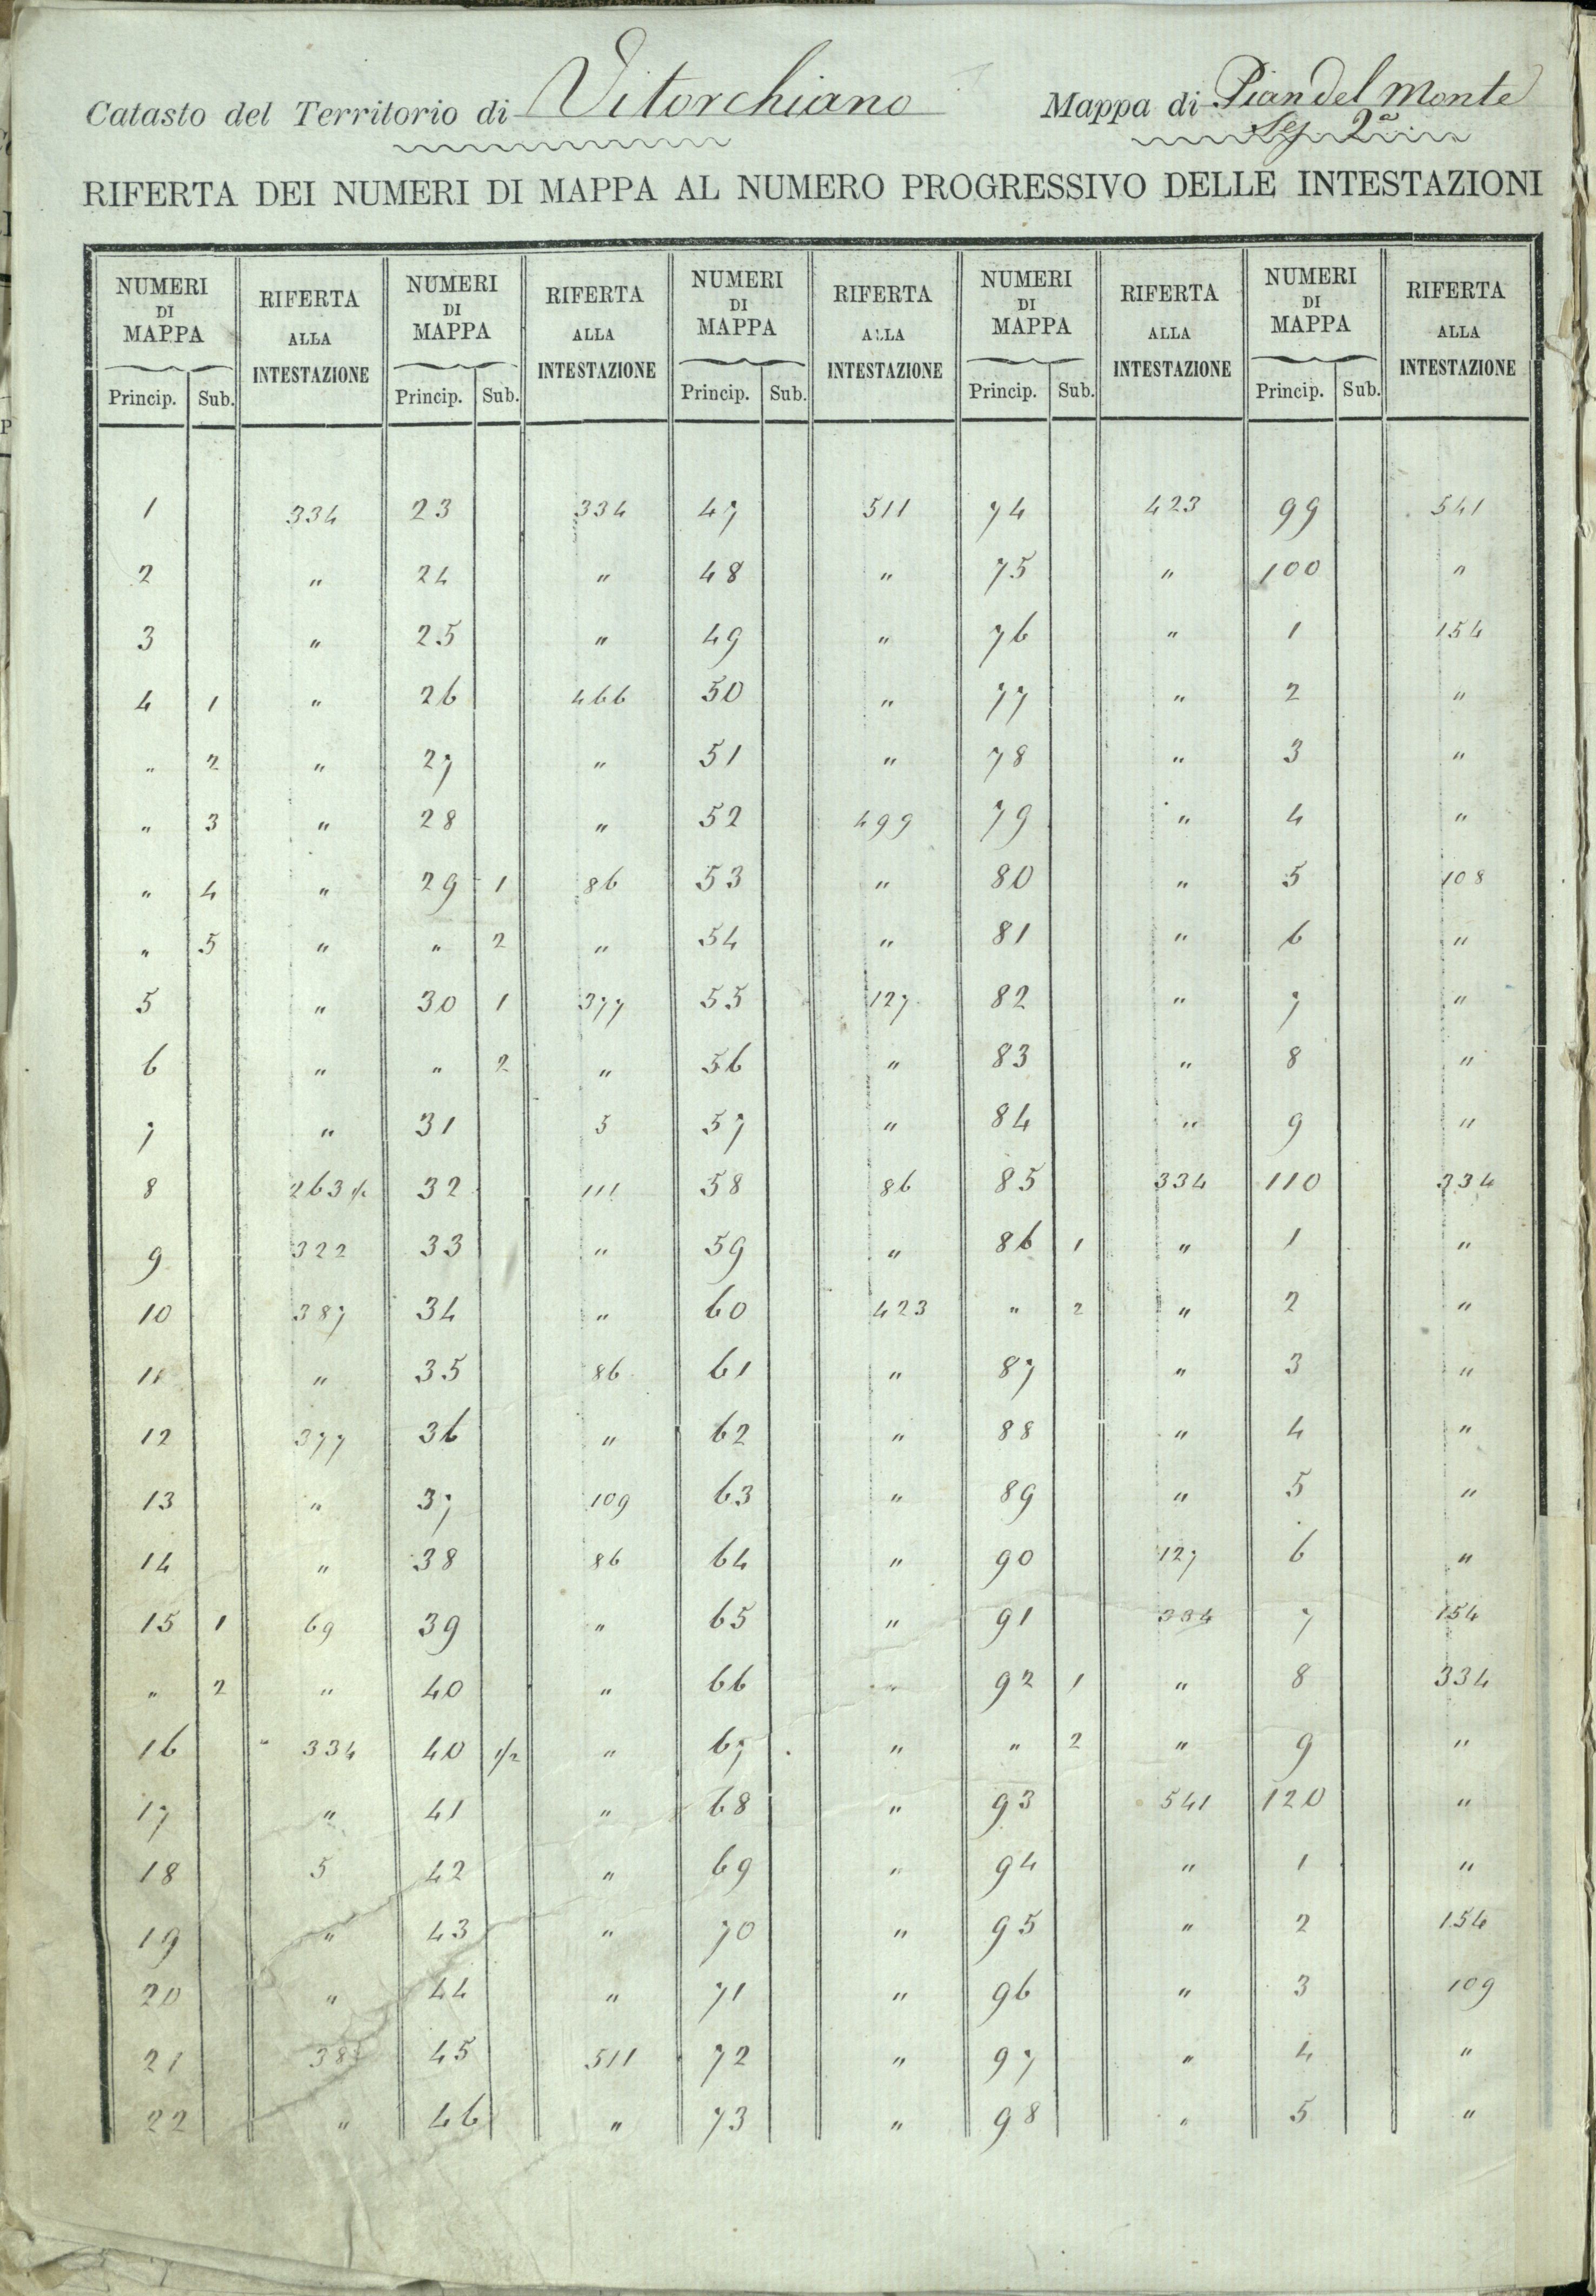 Catasto del Territorio di Vitorchiano Mappa di Pian del Monte
Sez. 2ª
RIFERTA DEI NUMERI DI MAPPA AL NUMERO PROGRESSIVO DELLE INTESTAZIONI
NUMERI DI MAPPA RIFERTA ALLA INTESTAZIONE NUMERI DI MAPPA RIFERTA ALLA INTESTAZIONE NUMERI DI MAPPA RIFERTA ALLA INTESTAZIONE NUMERI DI MAPPA RIFERTA ALLA INTESTAZIONE NUMERI DI MAPPA RIFERTA ALLA INTESTAZIONE
Princip. Sub. Princip. Sub. Princip. Sub. Princip. Sub. Princip. Sub.
1 334 23 334 47 511 74 423 99 541
2 " 24 " 48 " 75 " 100 "
3 " 25 " 49 " 76 " 1 154
4 1 " 26 466 50 " 77 " 2 "
" 2 " 27 " 51 " 78 " 3 "
" 3 " 28 " 52 499 79 " 4 "
" 4 " 29 1 86 53 " 80 " 5 108
" 5 " " 2 " 54 " 81 " 6 "
5 " 30 1 377 55 127 82 " 7 "
6 " " 2 " 56 " 83 " 8 "
7 " 31 5 57 " 84 " 9 "
8 263 ½ 32 111 58 86 85 334 110 334
9 322 33 " 59 " 86 1 " 1 "
10 387 34 " 60 423 " 2 " 2 "
11 " 35 86 61 " 87 " 3 "
12 377 36 " 62 " 88 " 4 "
13 " 37 109 63 " 89 " 5 "
14 " 38 86 64 " 90 127 6 "
15 1 69 39 " 65 " 91 334 7 154
" 2 " 40 " 66 " 92 1 " 8 334
16 " 334 40 1/2 " 67 " " 2 " 9 "
17 " 41 " 68 " 93 541 120 "
18 5 42 " 69 " 94 " 1 "
19 " 43 " 70 " 95 " 2 154
20 " 44 " 71 " 96 " 3 109
21 45 511 72 " 97 " 4 "
22 " 46 " 73 " 98 " 5 "